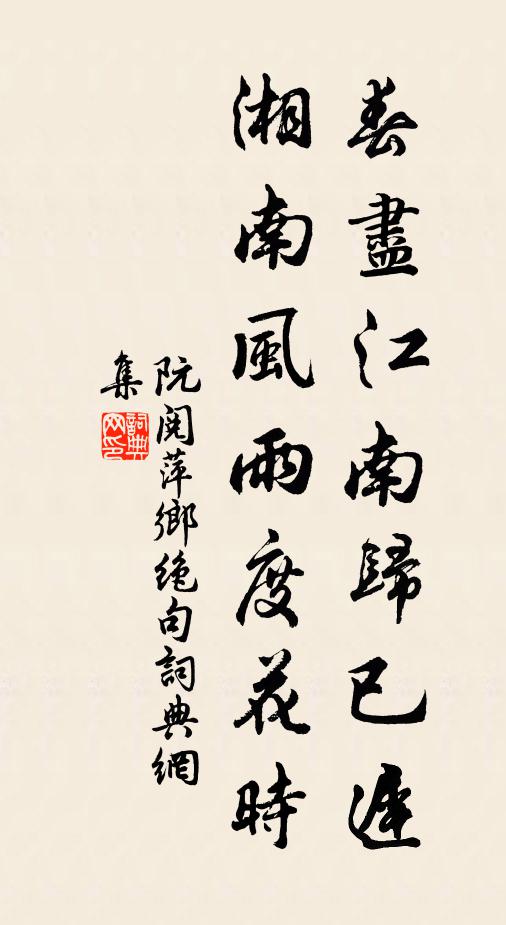 春盡江南歸已遲
湘南風雨度花時
阮閱萍鄉絶句詞典網
集
詞典
网印